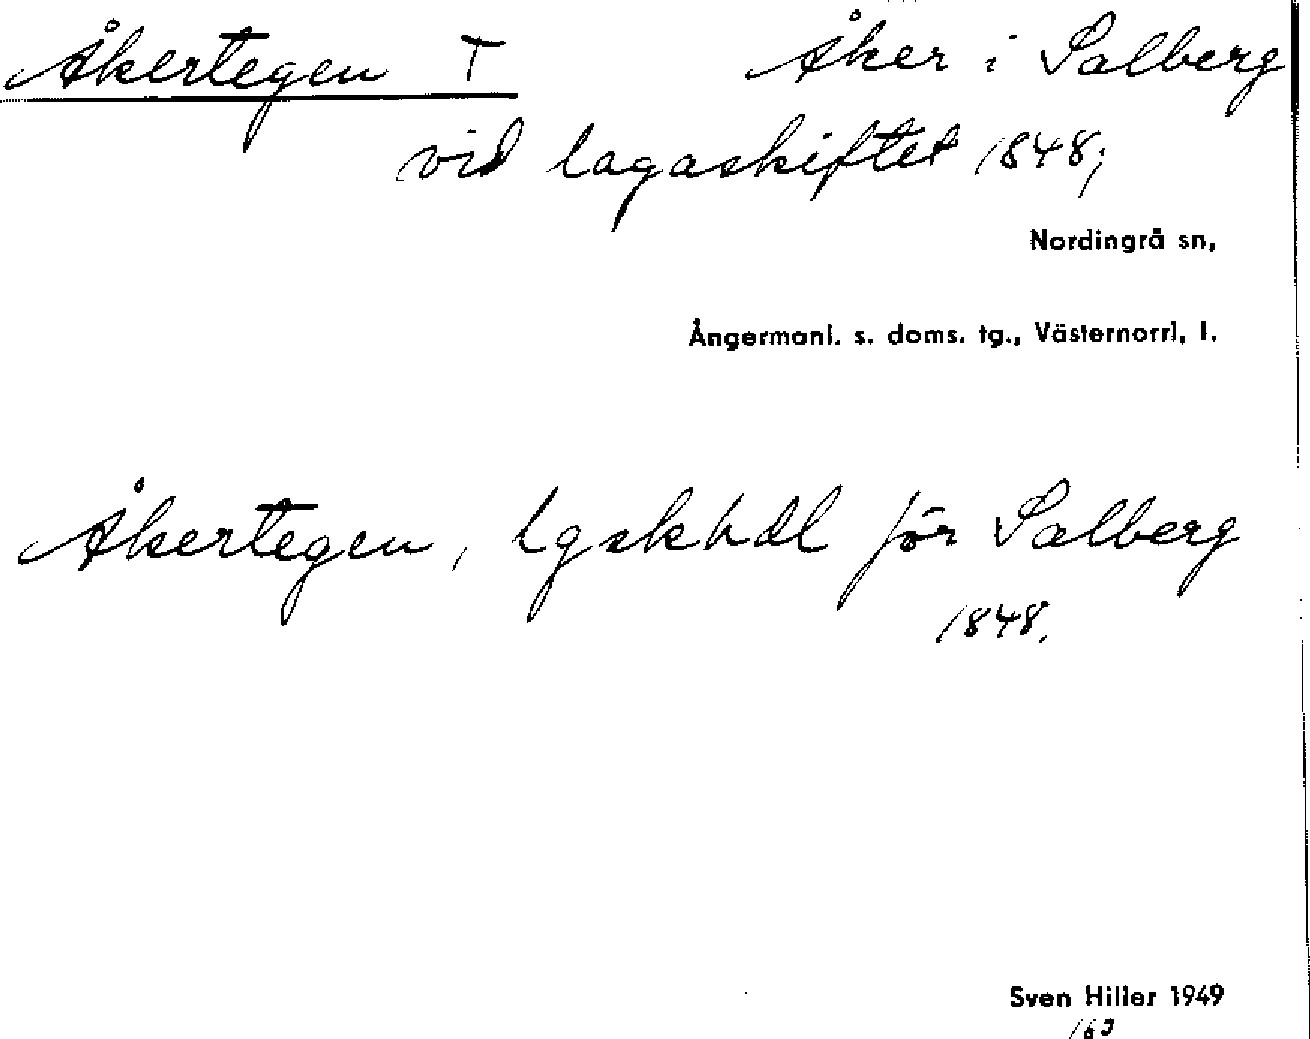 Åkertegen T Åker i Salberg
vid lagaskiftet 1848;
Nordingrå sn,
Ångermanl. s. doms. tg., Västernorrl. l.
Åkertegen, lgskhdl för Salberg
1848.
Sven Hiller 1949